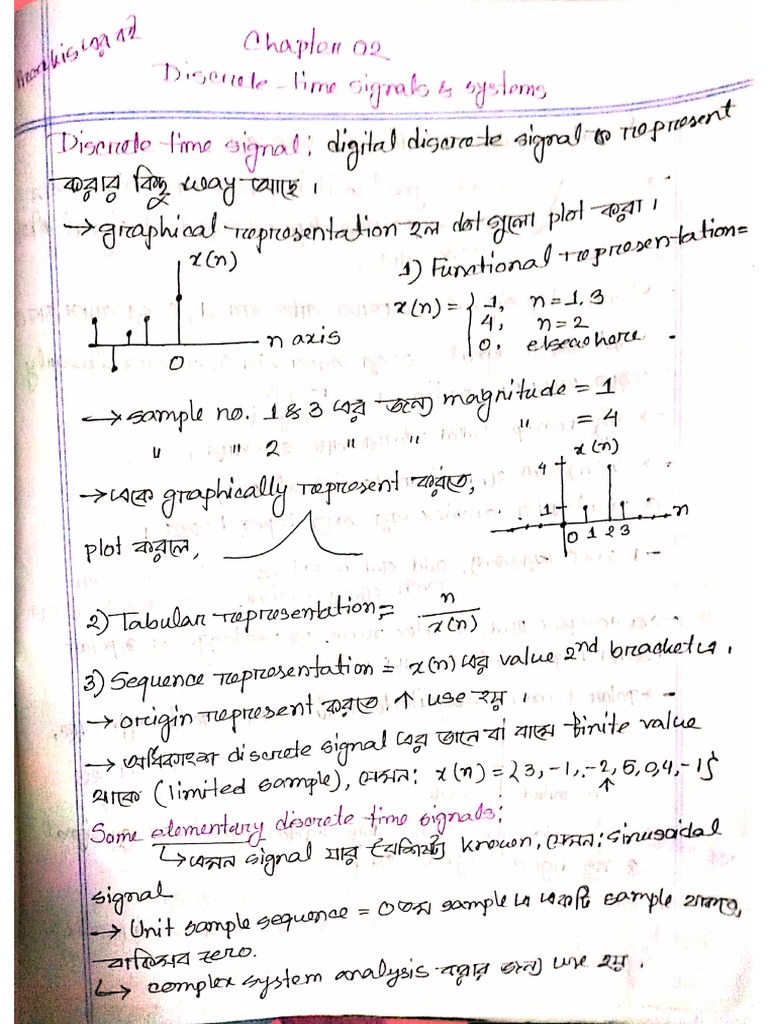 Chapter 02
Discrete-time signals & systems
Discrete time signal: digital discrete signal কে represent
করার কিছু way আছে।
→ graphical representation হল dot গুলো plot করা।
x(n)
n axis
0
1) Functional representation=
x(n) = { 1, n=1,3
4, n=2
0, elsewhere
→ sample no. 1 & 3 এর জন্য magnitude = 1
" " 2 " " " = 4
→ একে graphically represent করতে,
x(n)
4
1
n
0 1 2 3
plot করলে,
2) Tabular representation =
n
x(n)
3) Sequence representation = x(n) এর value 2nd bracket এ.
→ origin represent করতে ↑ use হয়।
→ অধিকাংশ discrete signal এর ডানে বা বামে finite value
থাকে (limited sample), যেমন: x(n) = {3, -1, -2, 5, 0, 4, -1}
↑
Some elementary discrete time signals:
↳ এমন signal যার বৈশিষ্ট্য known, যেমন: sinusoidal
signal
→ Unit sample sequence = 0তম sample এ একটি sample থাকবে,
বাকিসব zero.
↳ complex system analysis করার জন্য use হয়.